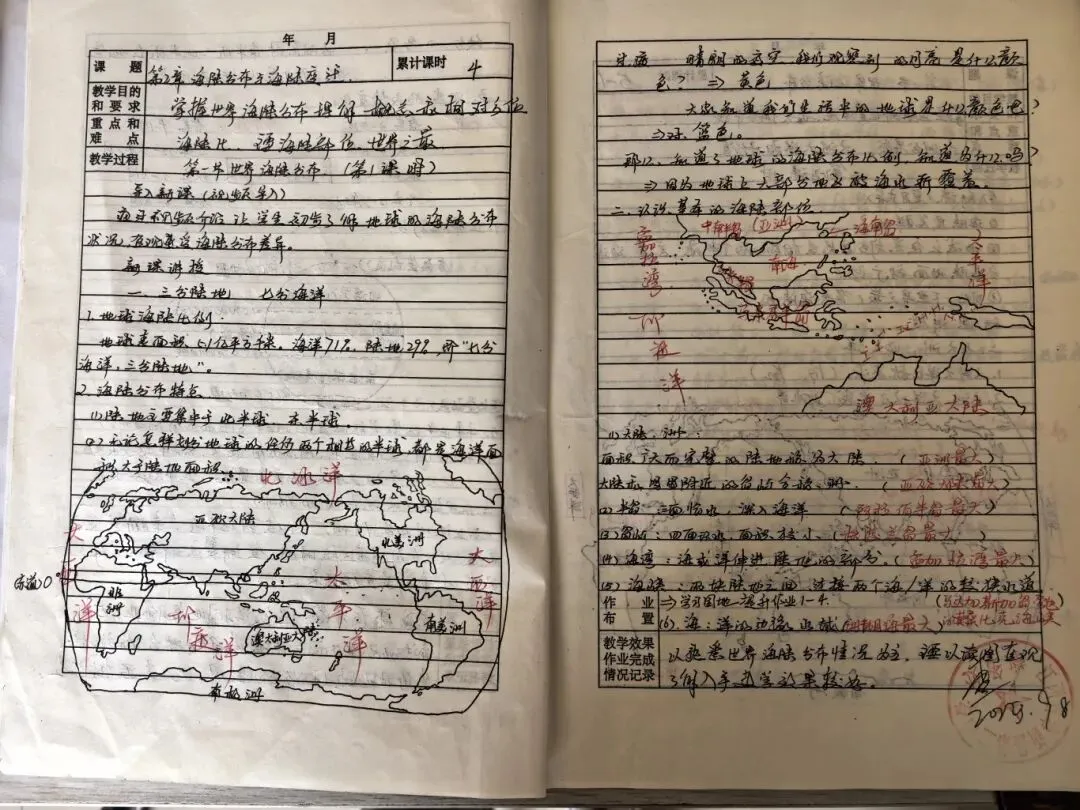 年 月
课 题 第2章 海陆分布与海陆变迁 累计课时 4
教学目的和要求 掌握世界海陆分布 理解 概念
重点和难点 海陆比 海陆部位 世界之最
教学过程 第一节 世界海陆分布 (第1课时)
导入新课 (视频导入)
让学生初步了解地球的海陆分布
状况, 海陆分布差异。
新课讲授
一 三分陆地 七分海洋
1.地球海陆比例:
地球表面积 5.1亿平方千米。海洋71% 陆地29%, 即"七分
海洋,三分陆地"。
2.海陆分布特点
(1)陆地主要集中于北半球 东半球
(2)无论怎样划分地球的任何两个相等的半球 都是海洋面
积大于陆地面积。
北冰洋
亚欧大陆
北美洲
大西洋
赤道0
非洲
太平洋
印度洋
澳大利亚大陆
南美洲
大西洋
南极洲
晴朗的夜空 我们观察到的月亮是什么颜
色? ⇒ 黄色
大家知道我们生活中的地球是什么颜色吧?
⇒对,蓝色。
那么,知道了地球的海陆分布比例,知道为什么吗?
⇒因为地球上大部分地区被海水所覆盖。
二、认识基本的海陆部位
中南半岛 (亚洲) 海南岛
孟加拉湾
南海
太平洋
印度洋
澳大利亚大陆
(1)大陆、洲:
面积广大而完整的陆地称为大陆。(亚洲最大)
大陆和周围附近的岛屿合称 洲。(亚欧大陆最大)
(2)半岛:三面临水,深入海洋 (阿拉伯半岛最大)
(3)岛屿:四面环水 面积较小 (格陵兰岛最大)
(4)海湾:海或洋伸进陆地的部分。(孟加拉湾最大)
(5)海峡:两块陆地之间,连接两个海/洋的较狭水道
作业布置 ⇒学习园地 提升作业1-4.
(6)海:洋的边缘水域 (珊瑚海最大)
教学效果作业完成情况记录 以熟悉世界海陆分布情况为主,课以读图直观
了解入手 教学效果较好。
9.8